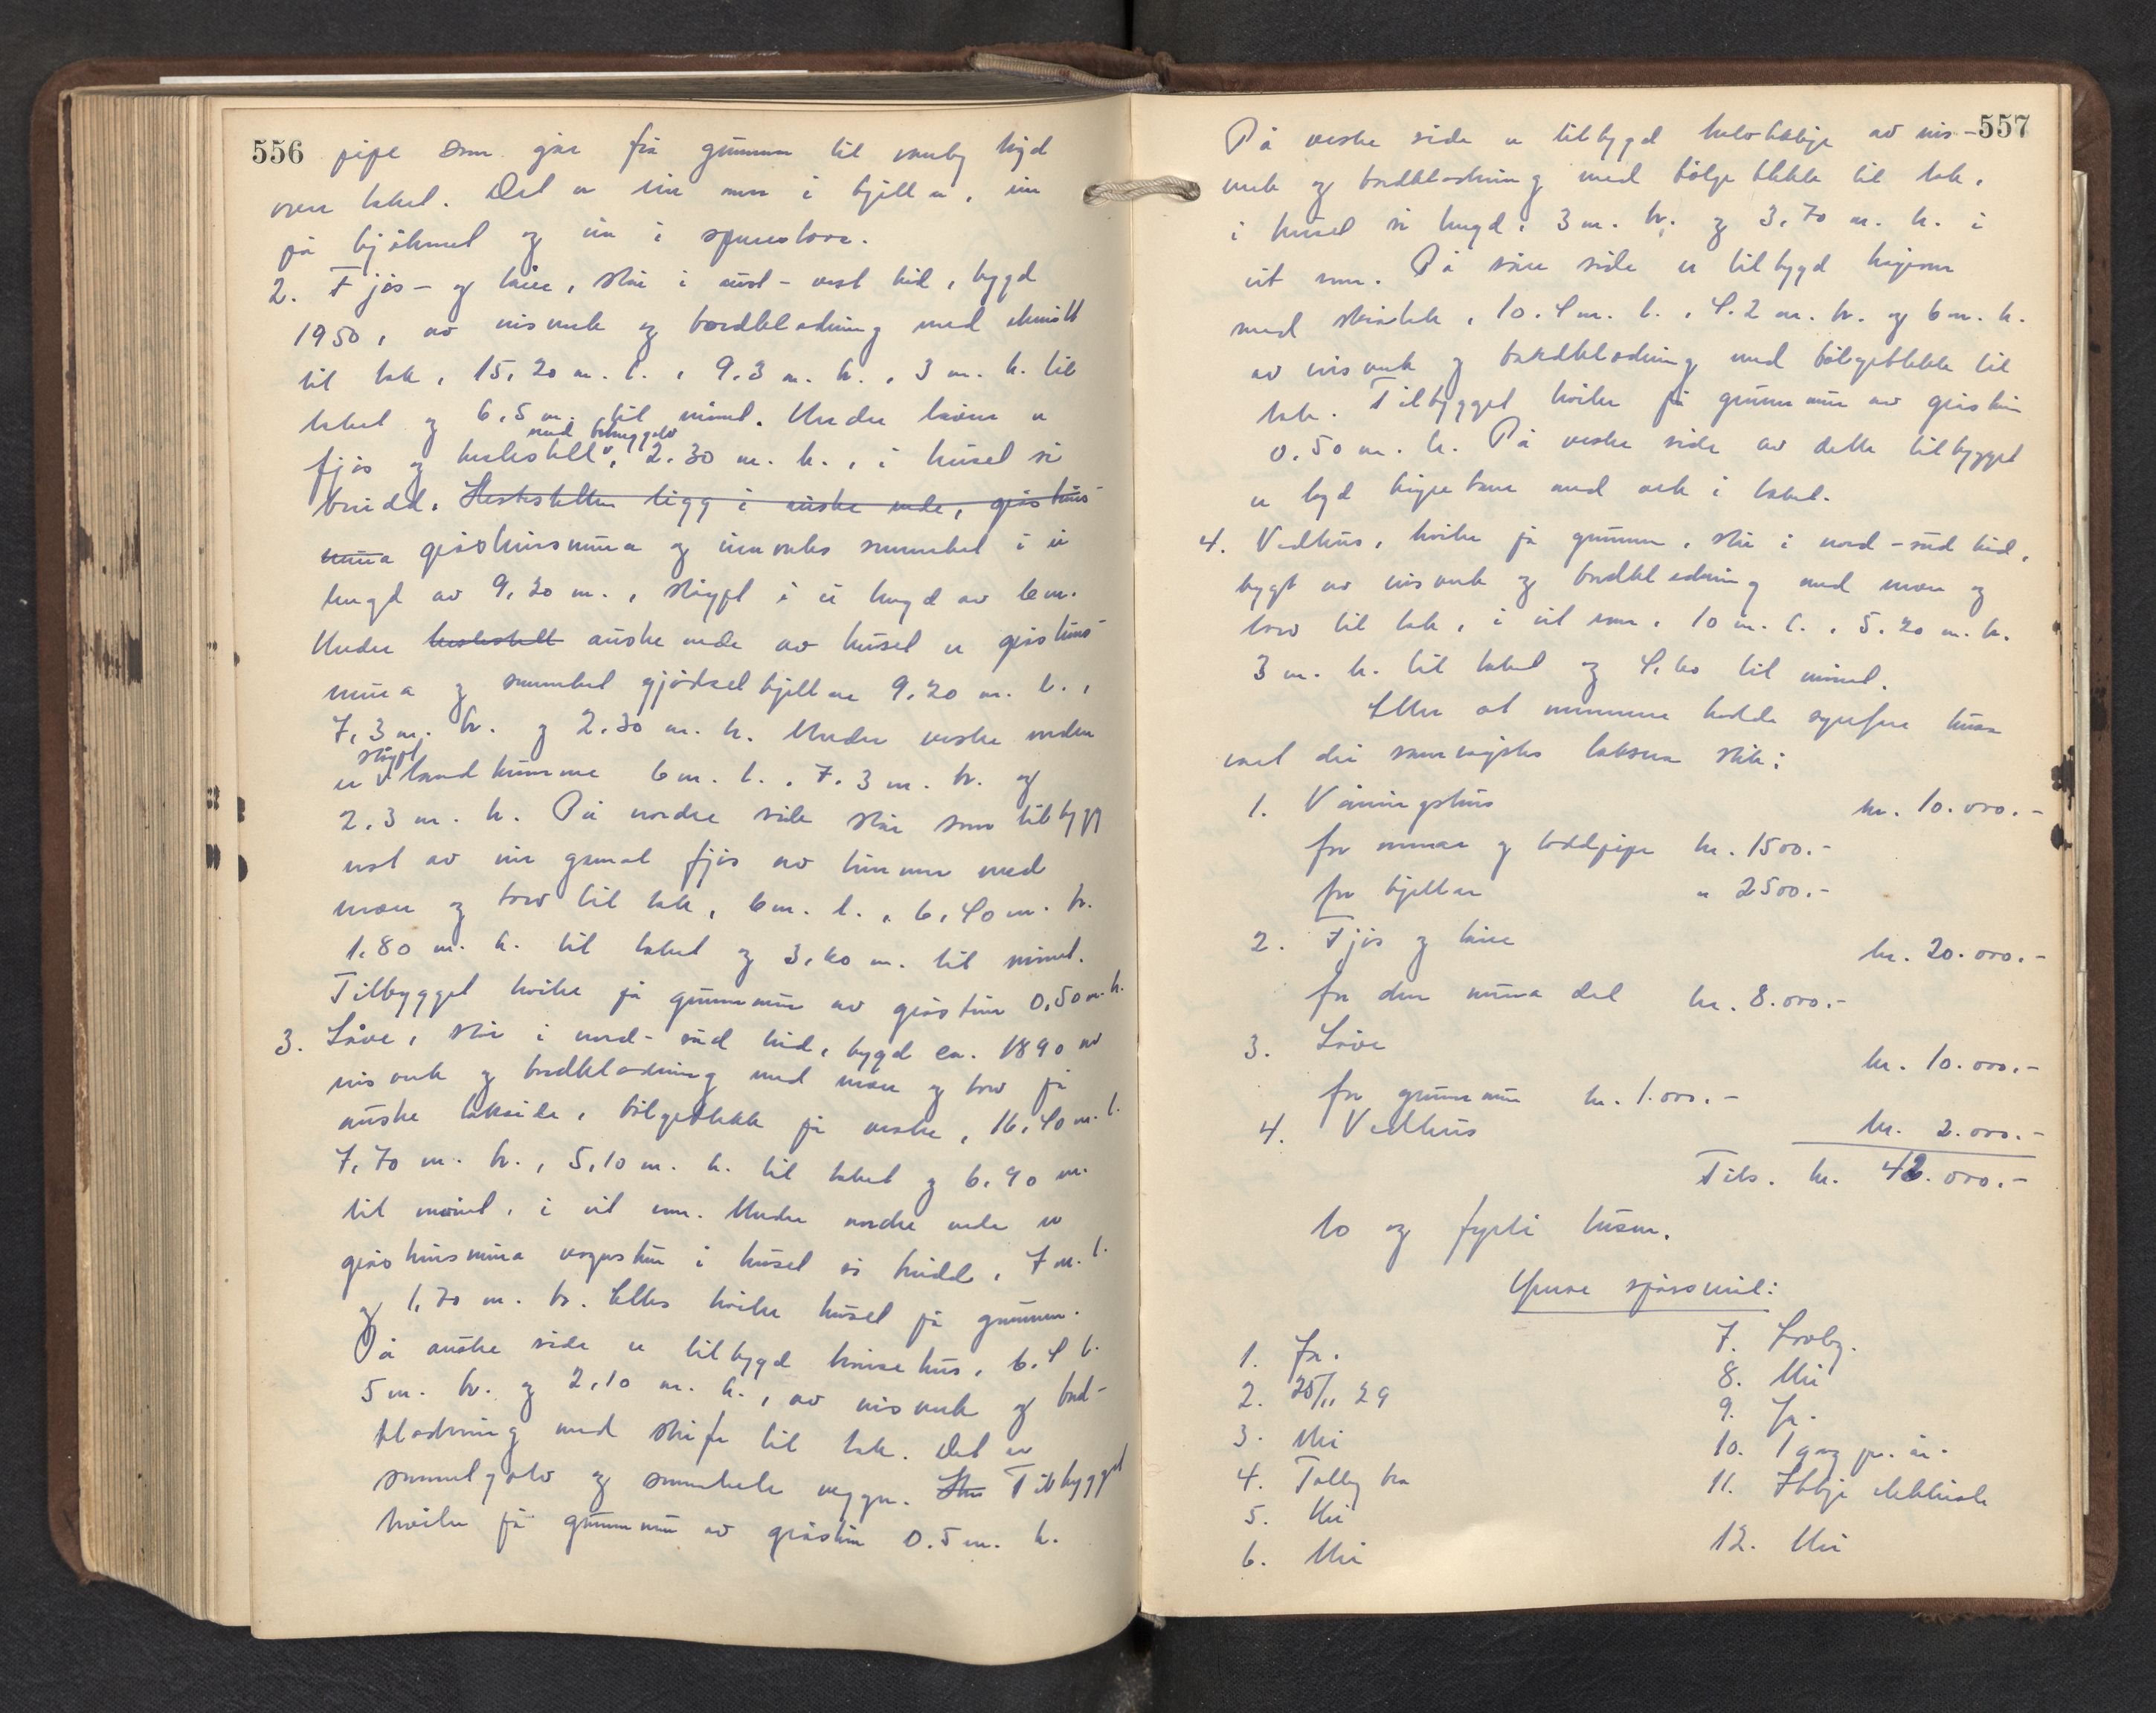 556
pipe som går frå grunnen til vanleg högd
over taket. Det er ein omn i kjellar, ein
på kjökenet og ein i spurestova.
2. Fjös- og löe, står i aust-vest leid, bygd
1950, av eisverk og bordkledning med
til tak, 15,20 m. l., 9.3 m. br., 3 m. h. til
taket og 6,5 m. til mönet. Under löene er
med
fjös og hestestall, 2.30 m. h., i huset si
breidd. Hestestallen ligg i austre ende, gråsteins
mura gråsteinsmura og innvortes sementert i ei
lengd av 9,20 m., støypt i ei lengd av 6 m.
Under hestestall austre ende av huset er gråsteins-
mura og sementert gjödselkjellar 9.20 m. l.,
7,3 m. br. og 2.30 m. h. Under vestre enden
støypt
er landkumme 6 m. l., 7.3 m. br. og
2.3 m. h. På nordre side står som tilbygg
rest av ein gamal fjös av timmer med
never og torv til tak, 6 m. l., 6,40 m. br.
1.80 m. h. til taket og 3,60 m. til mönet.
Tilbygget kviler på grunnmur av gråstein 0,50 m. h.
3. Löve, står i nord-sud leid, bygd ca. 1890 av
eisverk og bordkledning med never og torv på
austre takside, bölgeblekk på vestre, 16,40 m. l.
7,70 m. br., 5,10 m. h. til taket og 6.90 m.
til mönet, i eit rom. Under nordre ende er
gråsteinsmura vognskur i huset si breidd, 7 m. l.
og 1,70 m. br. Elles kviler huset på grunnen.
På austre side er tilbygd hönsehus, 6.4 l.
5 m. br. og 2,10 m. h., av eisverk og bord-
kledning med skifer til tak. Det er
sementgolv og sementerte vegger. Tilbygget
kviler på grunnmur av gråstein 0.5 m. h.
557
På vestre side er tilbygd av eis-
verk og bordkledning med bölgeblekk til tak,
i huset si lengd, 3 m. br. og 3,70 m. h. i
eit rom. På söre side er tilbygd
med 10.4 m. l., 4.2 m. br. og 6 m. h.
av eisverk og bordkledning med bölgeblekk til
tak. Tilbygget kviler på grunnmur av gråstein
0.50 m. h. På vestre side av dette tilbygget
er bygd med ark i taket.
4. Vedhus, kviler på grunnen, står i nord-sud leid,
bygt av eisverk og bordkledning med never og
torv til tak, i eit rom, 10 m. l., 5.20 m. br.
3 m. h. til taket og 4,60 til mönet.
Etter at nemnerne hadde synfare husa
vart dei samröystes taksera slik:
1. Våningshus kr. 10.000.-
for omnar og loddpipe kr. 1500.-
for kjellar " 2500.-
2. Fjös og löve kr. 20.000.-
for den mura del kr. 8.000.-
3. Löve kr. 10.000.-
for grunnmur kr. 1.000.-
4. Vedhus kr. 2.000.-
Tils. kr. 42.000.-
to og fyrti tusen.
Ymse spörsmål:
1. Ja.
2. 25/11 29
3. Nei
4. Tolleg bra
5. Nei
6. Nei
7. Loveleg.
8. Nei
9. Ja.
10. 1 gong pr. år.
11. Ikkje elektrisk
12. Nei